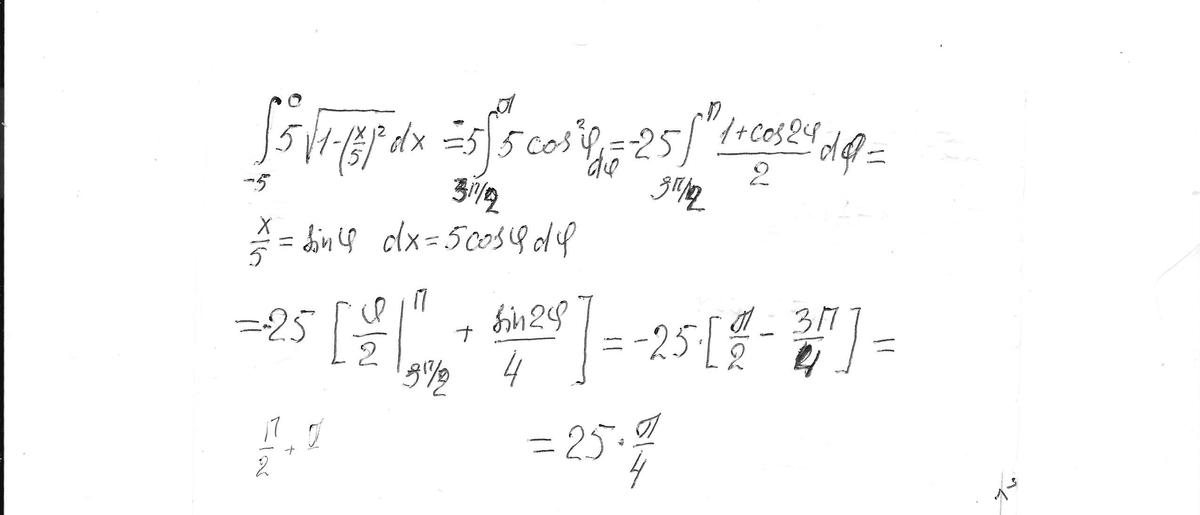 ∫_{-5}^{0} 5√(1-(x/5)²) dx = -5 ∫_{3π/2}^{π} 5 cos²φ dφ = -25 ∫_{3π/2}^{π} (1+cos2φ)/2 dφ =
x/5 = sinφ dx = 5cosφ dφ
= -25 [φ/2 |_{3π/2}^{π} + sin2φ/4] = -25·[π/2 - 3π/4] =
π/2 + π = 25·π/4